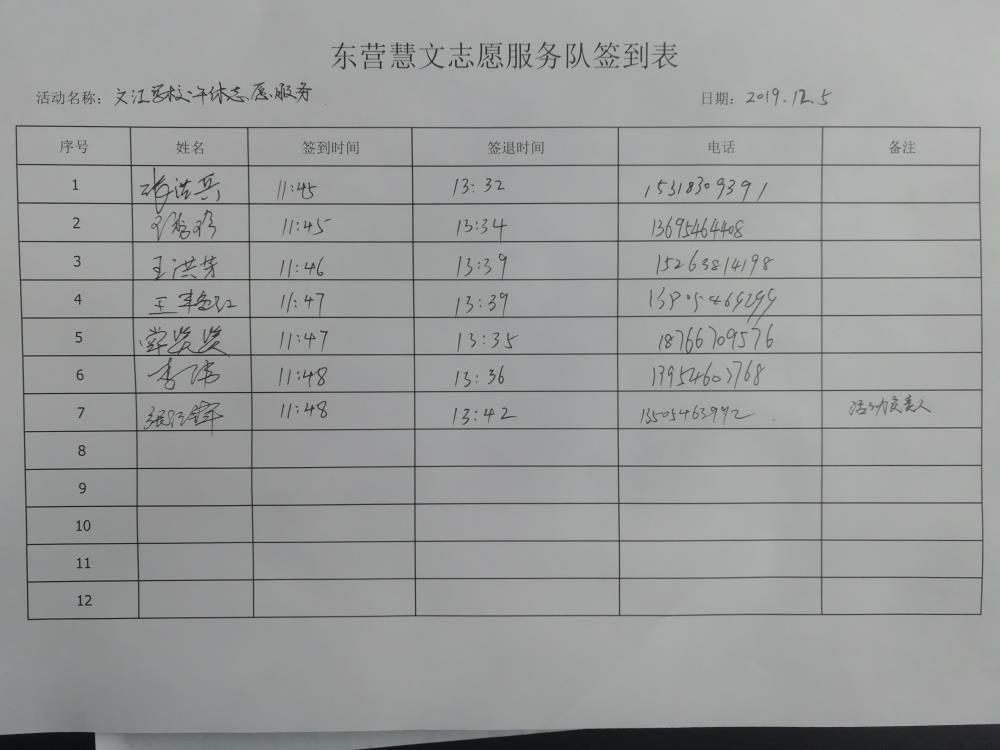 东营慧文志愿服务队签到表
活动名称: 文汇学校午休志愿服务 日期: 2019.12.5
序号 姓名 签到时间 签退时间 电话 备注
1 张洪兵 11:45 13:32 15318309391
2 11:45 13:34 13695464408
3 王洪芳 11:46 13:39 15263814198
4 王 11:47 13:39
5 11:47 13:35 18766709576
6 李伟 11:48 13:36 13954603768
7 张 11:48 13:42 13505463992 活动负责人
8
9
10
11
12